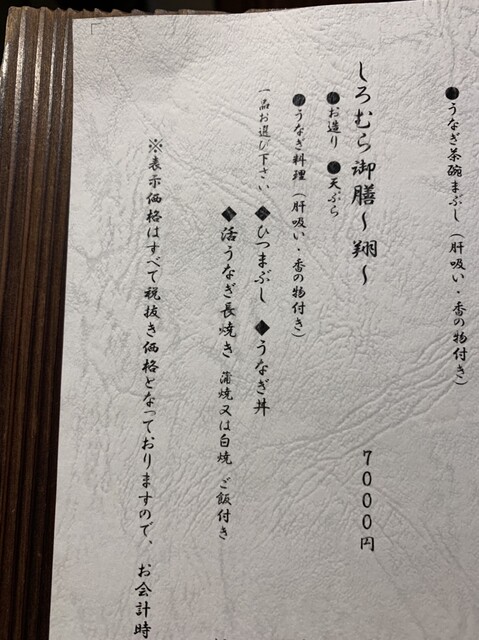 ●うなぎ茶碗まぶし（肝吸い・香の物付き）
しろむら御膳～翔～ 7000円
●お造り ●天ぷら
●うなぎ料理（肝吸い・香の物付き）
一品お選び下さい ◆ひつまぶし ◆うなぎ丼
◆活うなぎ長焼き 蒲焼又は白焼 ご飯付き
※表示価格はすべて税抜き価格となっておりますので、お会計時